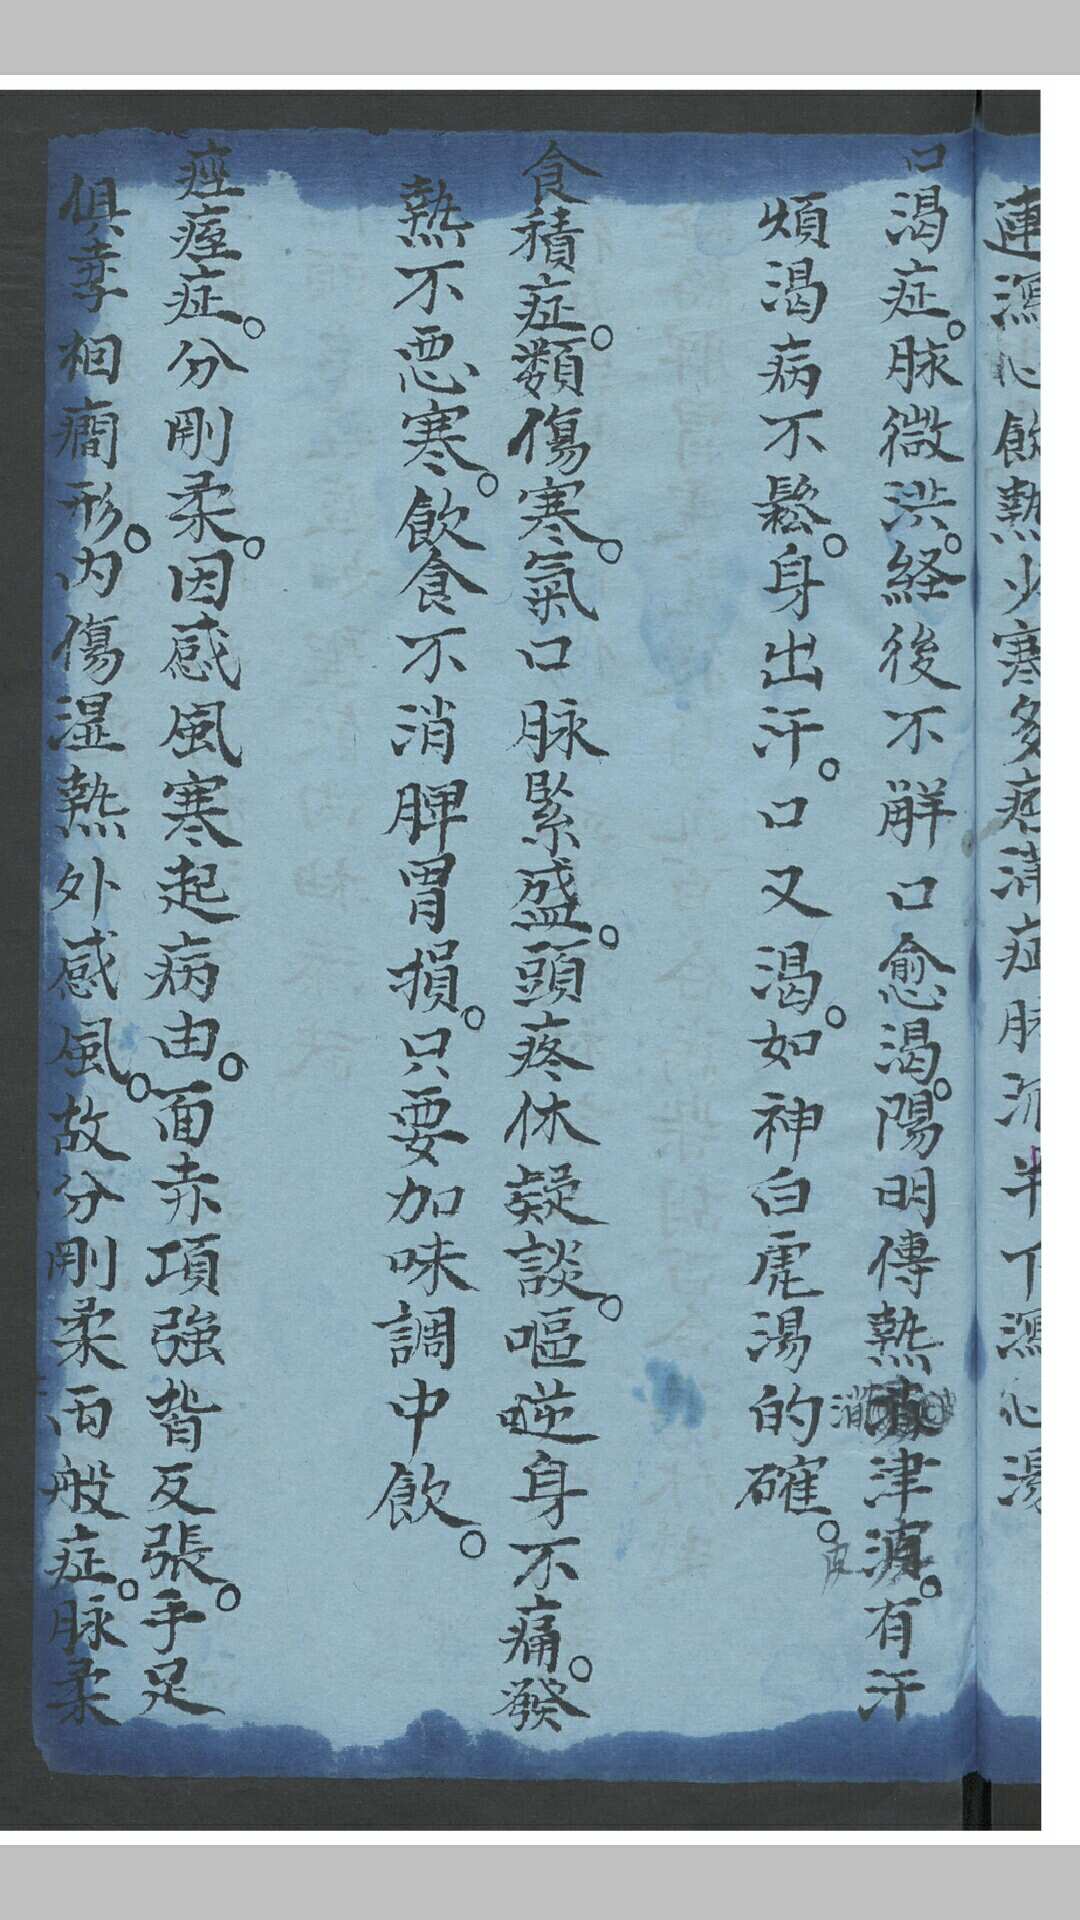 連瀉心飲熱少寒多痞滿症脉沉半下瀉心湯
口渴症。脉微洪。経後不解口愈渴。陽明傳熱津源。有汗
煩渴病不鬆。身出汗。口又渴。如神白虎湯的確。
食積症。類傷寒。氣口脉緊盛。頭疼休疑談。嘔逆身不痛。發
熱不惡寒。飲食不消脾胃損。只要加味調中飲。
痙痓症。分剛柔。因感風寒起病由。面赤項強背反張。手足
俱牽相癇形。内傷濕熱外感風。故分剛柔両般症。脉柔